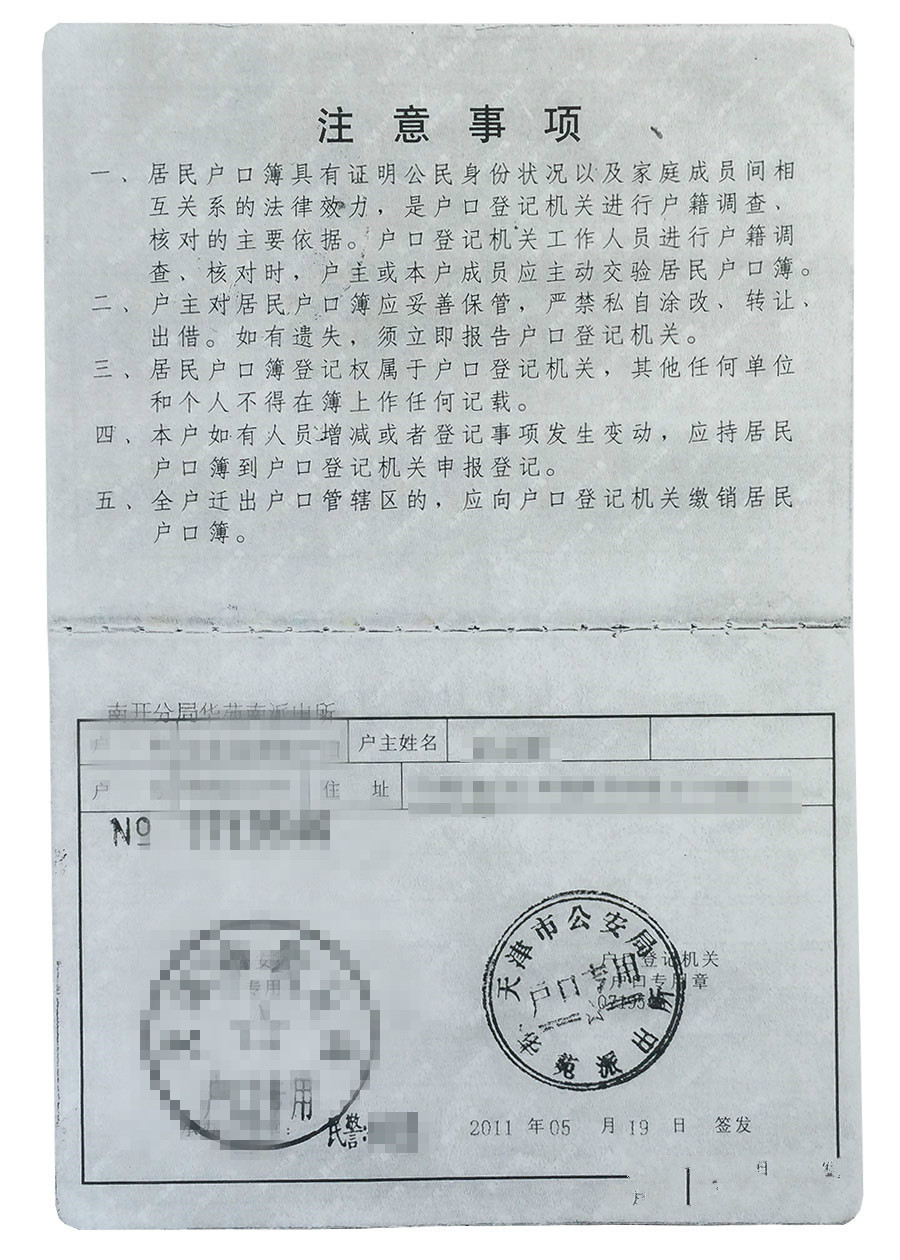 注意事项
一、居民户口簿具有证明公民身份状况以及家庭成员间相
互关系的法律效力，是户口登记机关进行户籍调查、
核对的主要依据。户口登记机关工作人员进行户籍调
查、核对时，户主或本户成员应主动交验居民户口簿。
二、户主对居民户口簿应妥善保管，严禁私自涂改、转让、
出借。如有遗失，须立即报告户口登记机关。
三、居民户口簿登记权属于户口登记机关，其他任何单位
和个人不得在簿上作任何记载。
四、本户如有人员增减或者登记事项发生变动，应持居民
户口簿到户口登记机关申报登记。
五、全户迁出户口管辖区的，应向户口登记机关缴销居民
户口簿。
南开分局华苑南派出所
户 户主姓名
户 住 址
№
天津市公安局
华苑派出所
户口专用
户口登记机关
户口专用章
专用
户口专用
民警:
2011 年 05 月 19 日 签发
户 日